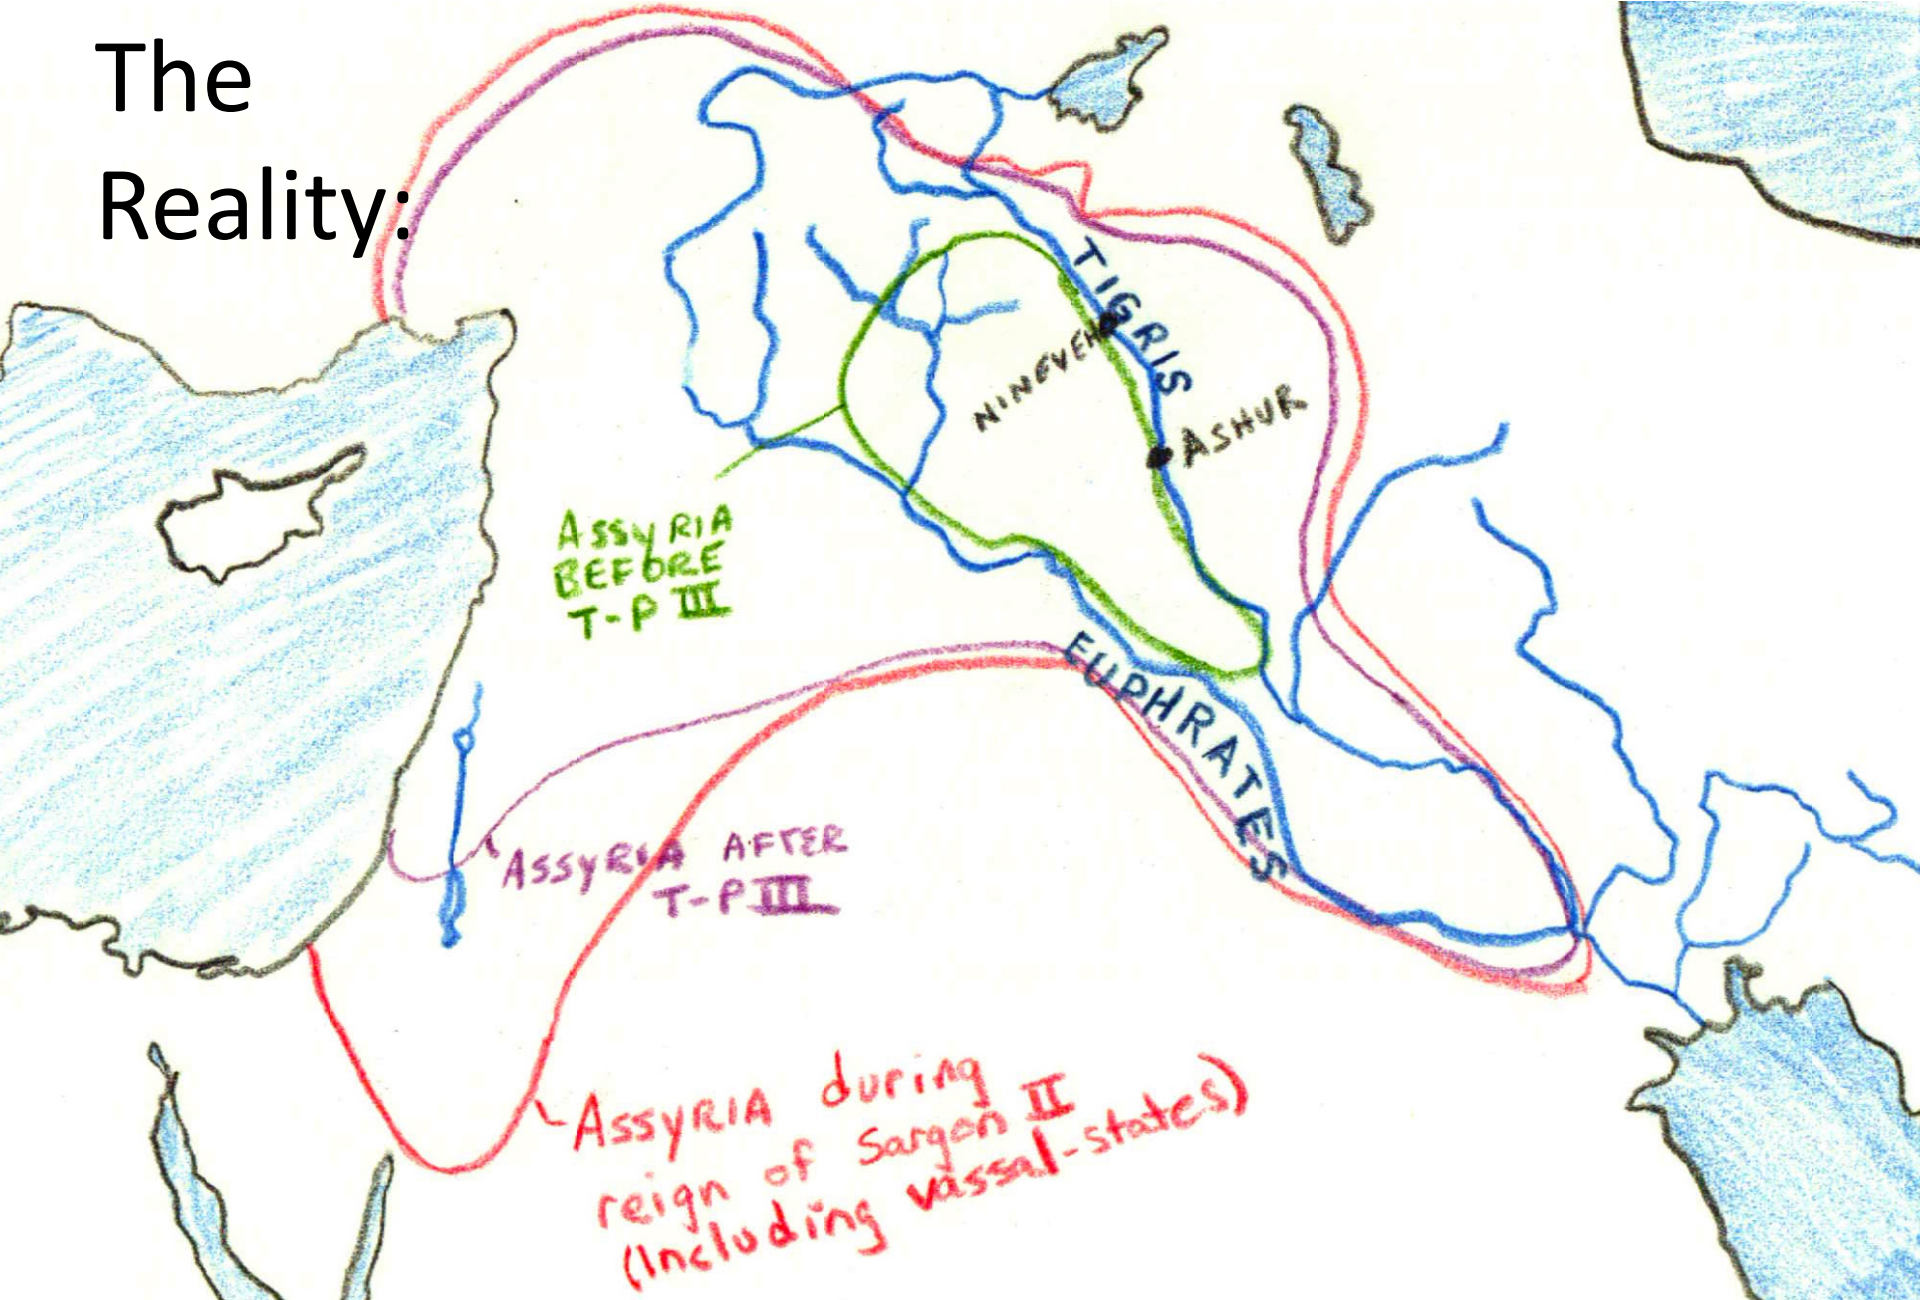 The
Reality:
TIGRIS
NINEVEH
ASHUR
ASSYRIA
BEFORE
T-P III
EUPHRATES
ASSYRIA AFTER
T-P III
ASSYRIA during
reign of Sargon II
(Including vassal-states)